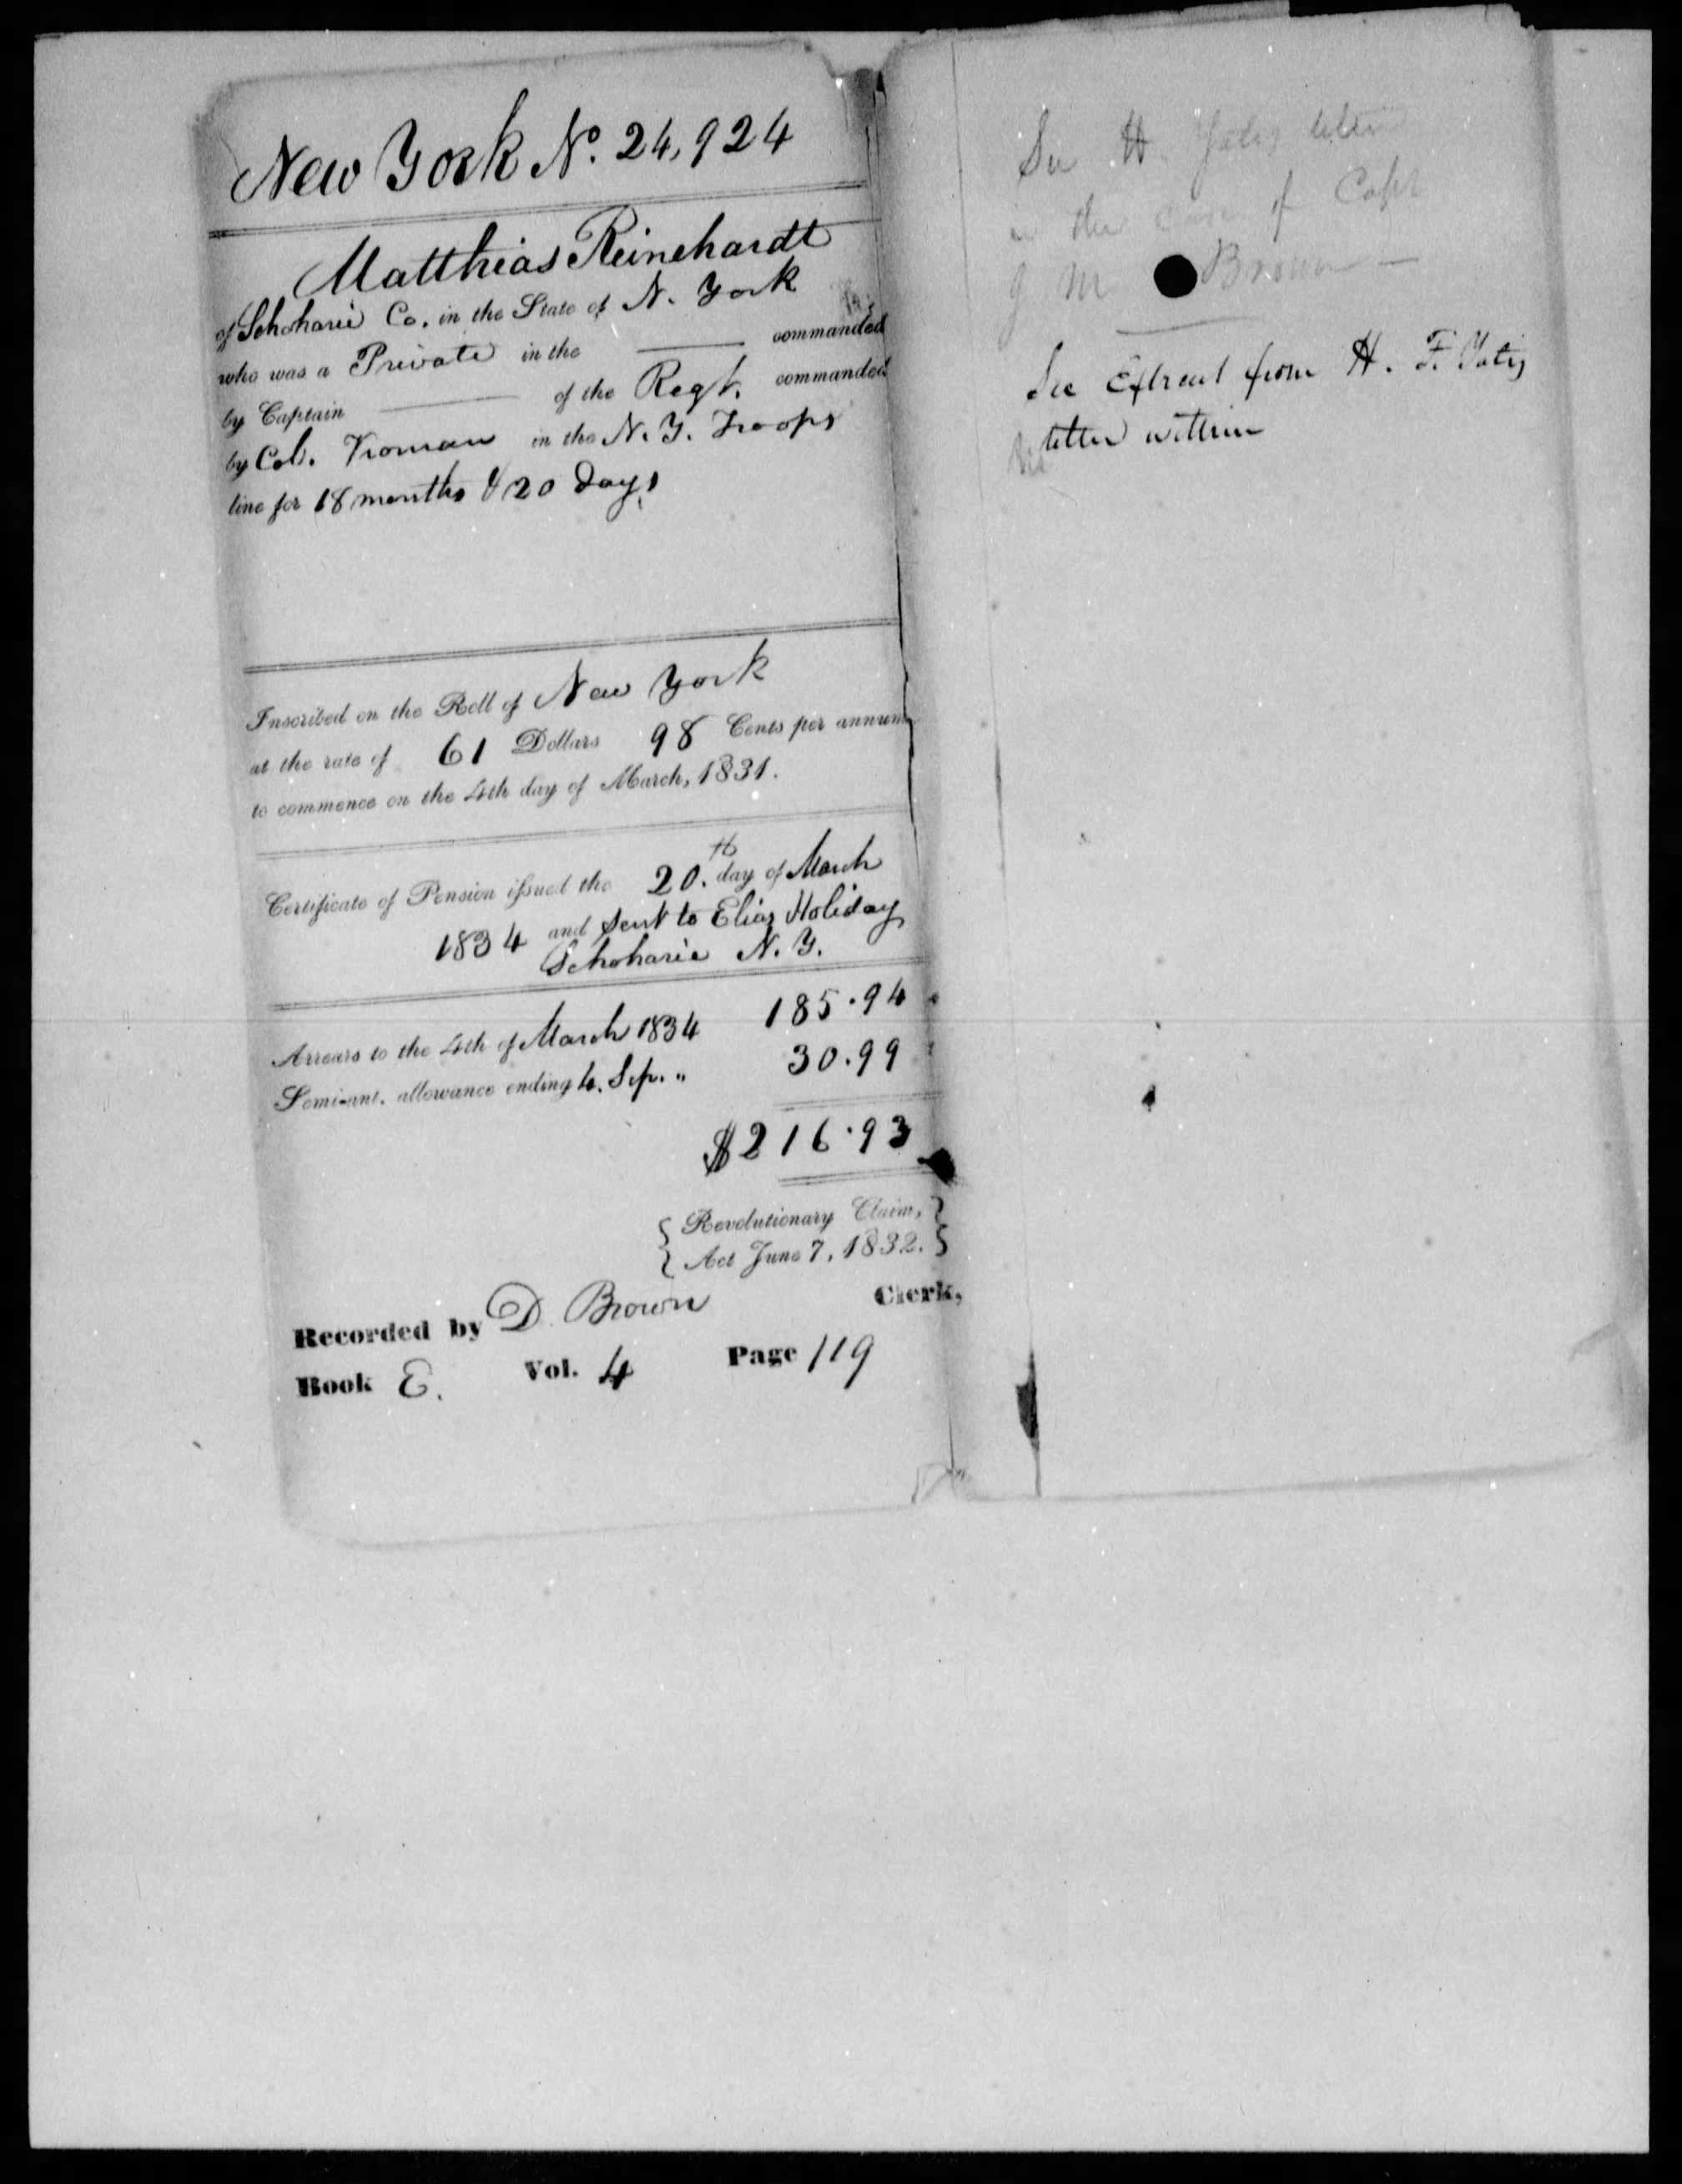 New York No. 24,924
Matthias Reinehardt
of Schoharie Co. in the State of N. York
who was a Private in the —— commanded
by Captain —— of the Regt. commanded
by Col. Vroman in the N. Y. Troops
line for 18 months & 20 days
Inscribed on the Roll of New York
at the rate of 61 Dollars 98 Cents per annum
to commence on the 4th day of March, 1831.
Certificate of Pension issued the 20.th day of March
1834 and sent to Elias Holiday
Schoharie N. Y.
Arrears to the 4th of March 1834 185.94
Semi-anl. allowance ending 4. Sep. " 30.99
$216.93
{ Revolutionary Claim, }
{ Act June 7, 1832. }
Recorded by D. Brown Clerk,
Book E. Vol. 4 Page 119
See H. Yates letter
in the case of Capt
J M Brown —
See Extract from H. F. Yates
letter within